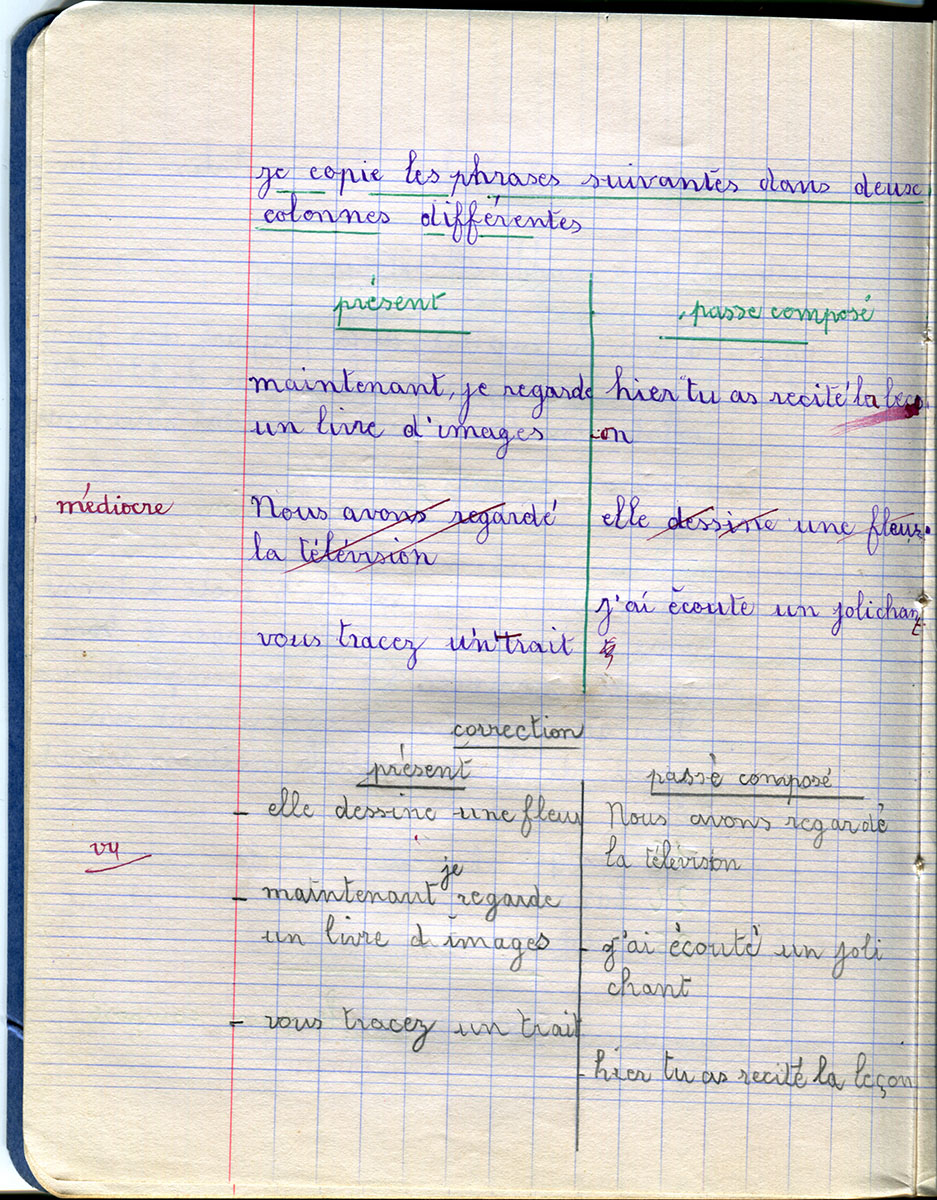 je copie les phrases suivantes dans deux
colonnes différentes
présent
passe composé
maintenant, je regarde
un livre d'images
hier tu as recité la leç
-on
médiocre
Nous avons regardé
la télévision
elle dessine une fleur.
j'ai écoute un joli chant
vous tracez un trait
correction
présent
passè composé
- elle dessine une fleur
Nous avons regardé
la télévision
vu
je
- maintenant regarde
un livre d'images
- j'ai écouté un joli
chant
- vous tracez un trait
- hier tu as recité la leçon